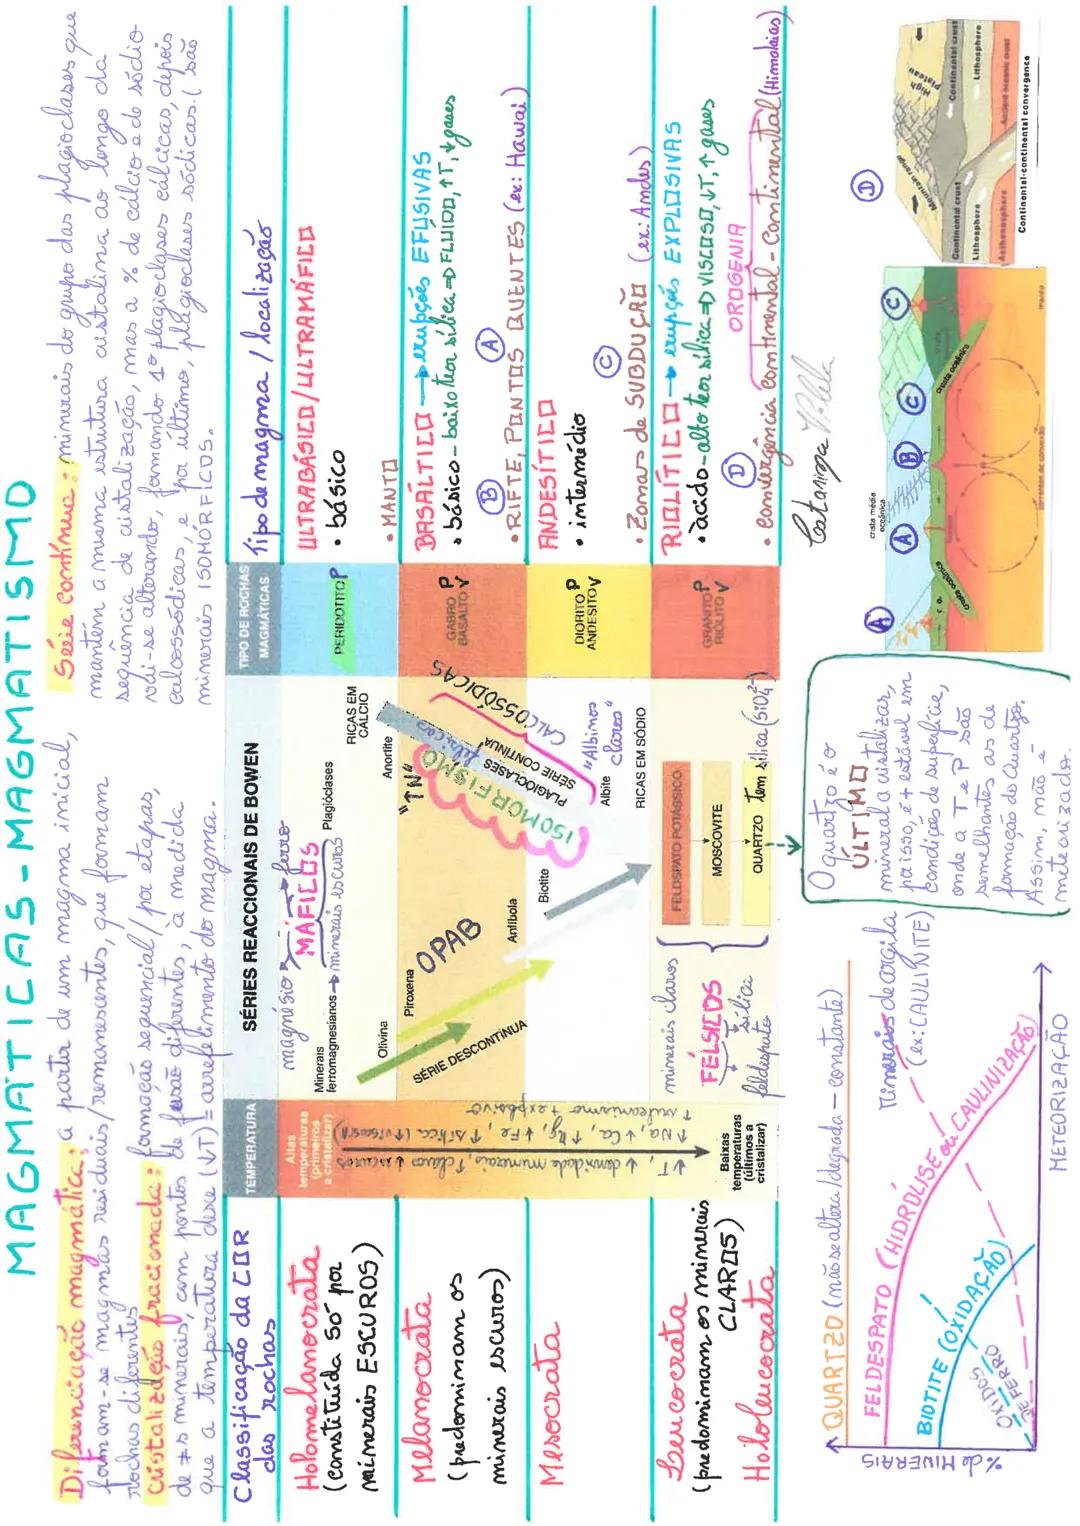 MAGMÁTICAS - MAGMATISMO
Diferenciação magmática: a partir de um magma inicial,
formam-se magmas residuais/remanescentes, que formam
rochas diferentes
Cristalização fracionada: formação sequencial/por etapas,
de ≠s minerais, com pontos de fusão diferentes, à medida
que a temperatura desce (↓T) = arrefecimento do magma.
Série contínua: minerais do grupo das plagioclases que
mantêm a mesma estrutura cristalina ao longo da
sequência de cristalização, mas a % de cálcio e de sódio
vai-se alterando, formando 1º plagioclases cálcicas, depois
calcossódicas, e por último, plagioclases sódicas. (são
minerais ISOMÓRFICOS.
Classificação da COR
das rochas
Holomelanocrata
(constituída só por
minerais ESCUROS)
Melanocrata
(predominam os
minerais escuros)
Mesocrata
Leucocrata
(predominam os minerais
CLAROS)
Hololeucocrata
TEMPERATURA
Altas
temperaturas
(primeiros
a cristalizar)
Baixas
temperaturas
(últimos a
cristalizar)
SÉRIES REACCIONAIS DE BOWEN
magnésio
ferro
MÁFICOS
Minerais
ferromagnesianos → minerais escuros
Plagióclases
RICAS EM
CÁLCIO
Olivina
Anortite
Piroxena
OPAB
"↑N"
SÉRIE DESCONTÍNUA
Anfíbola
Biotite
ISOMORFISMO
PLAGIÓCLASES
SÉRIE CONTÍNUA
CALCOSSÓDICAS
Albite
"Albinos
claros"
RICAS EM SÓDIO
minerais claros
FÉLSICOS
feldespato
sílica
FELDSPATO POTÁSSICO
MOSCOVITE
QUARTZO
tem sílica (SiO₄²⁻)
TIPO DE ROCHAS
MAGMÁTICAS
PERIDOTITO P
GABRO P
BASALTO V
DIORITO P
ANDESITO V
GRANITO P
RIÓLITO V
Tipo de magma / localização
ULTRABÁSICO/ULTRAMÁFICO
• básico
• MANTO
BASÁLTICO → erupções EFUSIVAS
• básico - baixo teor sílica ⇒ FLUIDO, ↑T, ↓gases
B
A
• RIFTE, PONTOS QUENTES (ex: Hawai)
ANDESÍTICO
• intermédio
C
• Zonas de SUBDUÇÃO (ex: Andes)
RIOLÍTICO → erupções EXPLOSIVAS
• ácido - alto teor sílica ⇒ VISCOSO, ↓T, ↑ gases
D
OROGENIA
• Convergência Continental - Continental (Himalaias)
Catarina Vilela
% de MINERAIS
QUARTZO (não se altera/degrada - constante)
FELDESPATO (HIDRÓLISE ou CAULINIZAÇÃO)
BIOTITE (OXIDAÇÃO)
ÓXIDOS
DE FERRO
Minerais de argila
(ex: CAULINITE)
METEORIZAÇÃO
O quartzo é o
ÚLTIMO
mineral a cristalizar,
por isso, é + estável em
condições de superfície,
onde a T e P são
semelhantes às de
formação do Quartzo.
Assim, não é
meteorizado.
crista média
oceânica
A
A
B
C
C
crosta oceânica
crosta oceânica
D
Mountain range
High
Plateau
Continental crust
Continental crust
Lithosphere
Lithosphere
Asthenosphere
Ancient oceanic crust
Continental-continental convergence